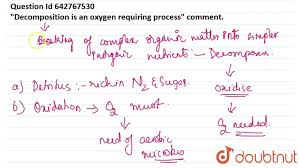 Question Id 642767530
"Decomposition is an oxygen requiring process" comment.
↳ Breaking of complex organic matter into simpler
inorganic nutrients — Decomposers
a) Detritus :- rich in N2 & Sugar.
oxidise
b) Oxidation → O2 must.
O2 needed.
need of aerobic
microbes
doubtnut